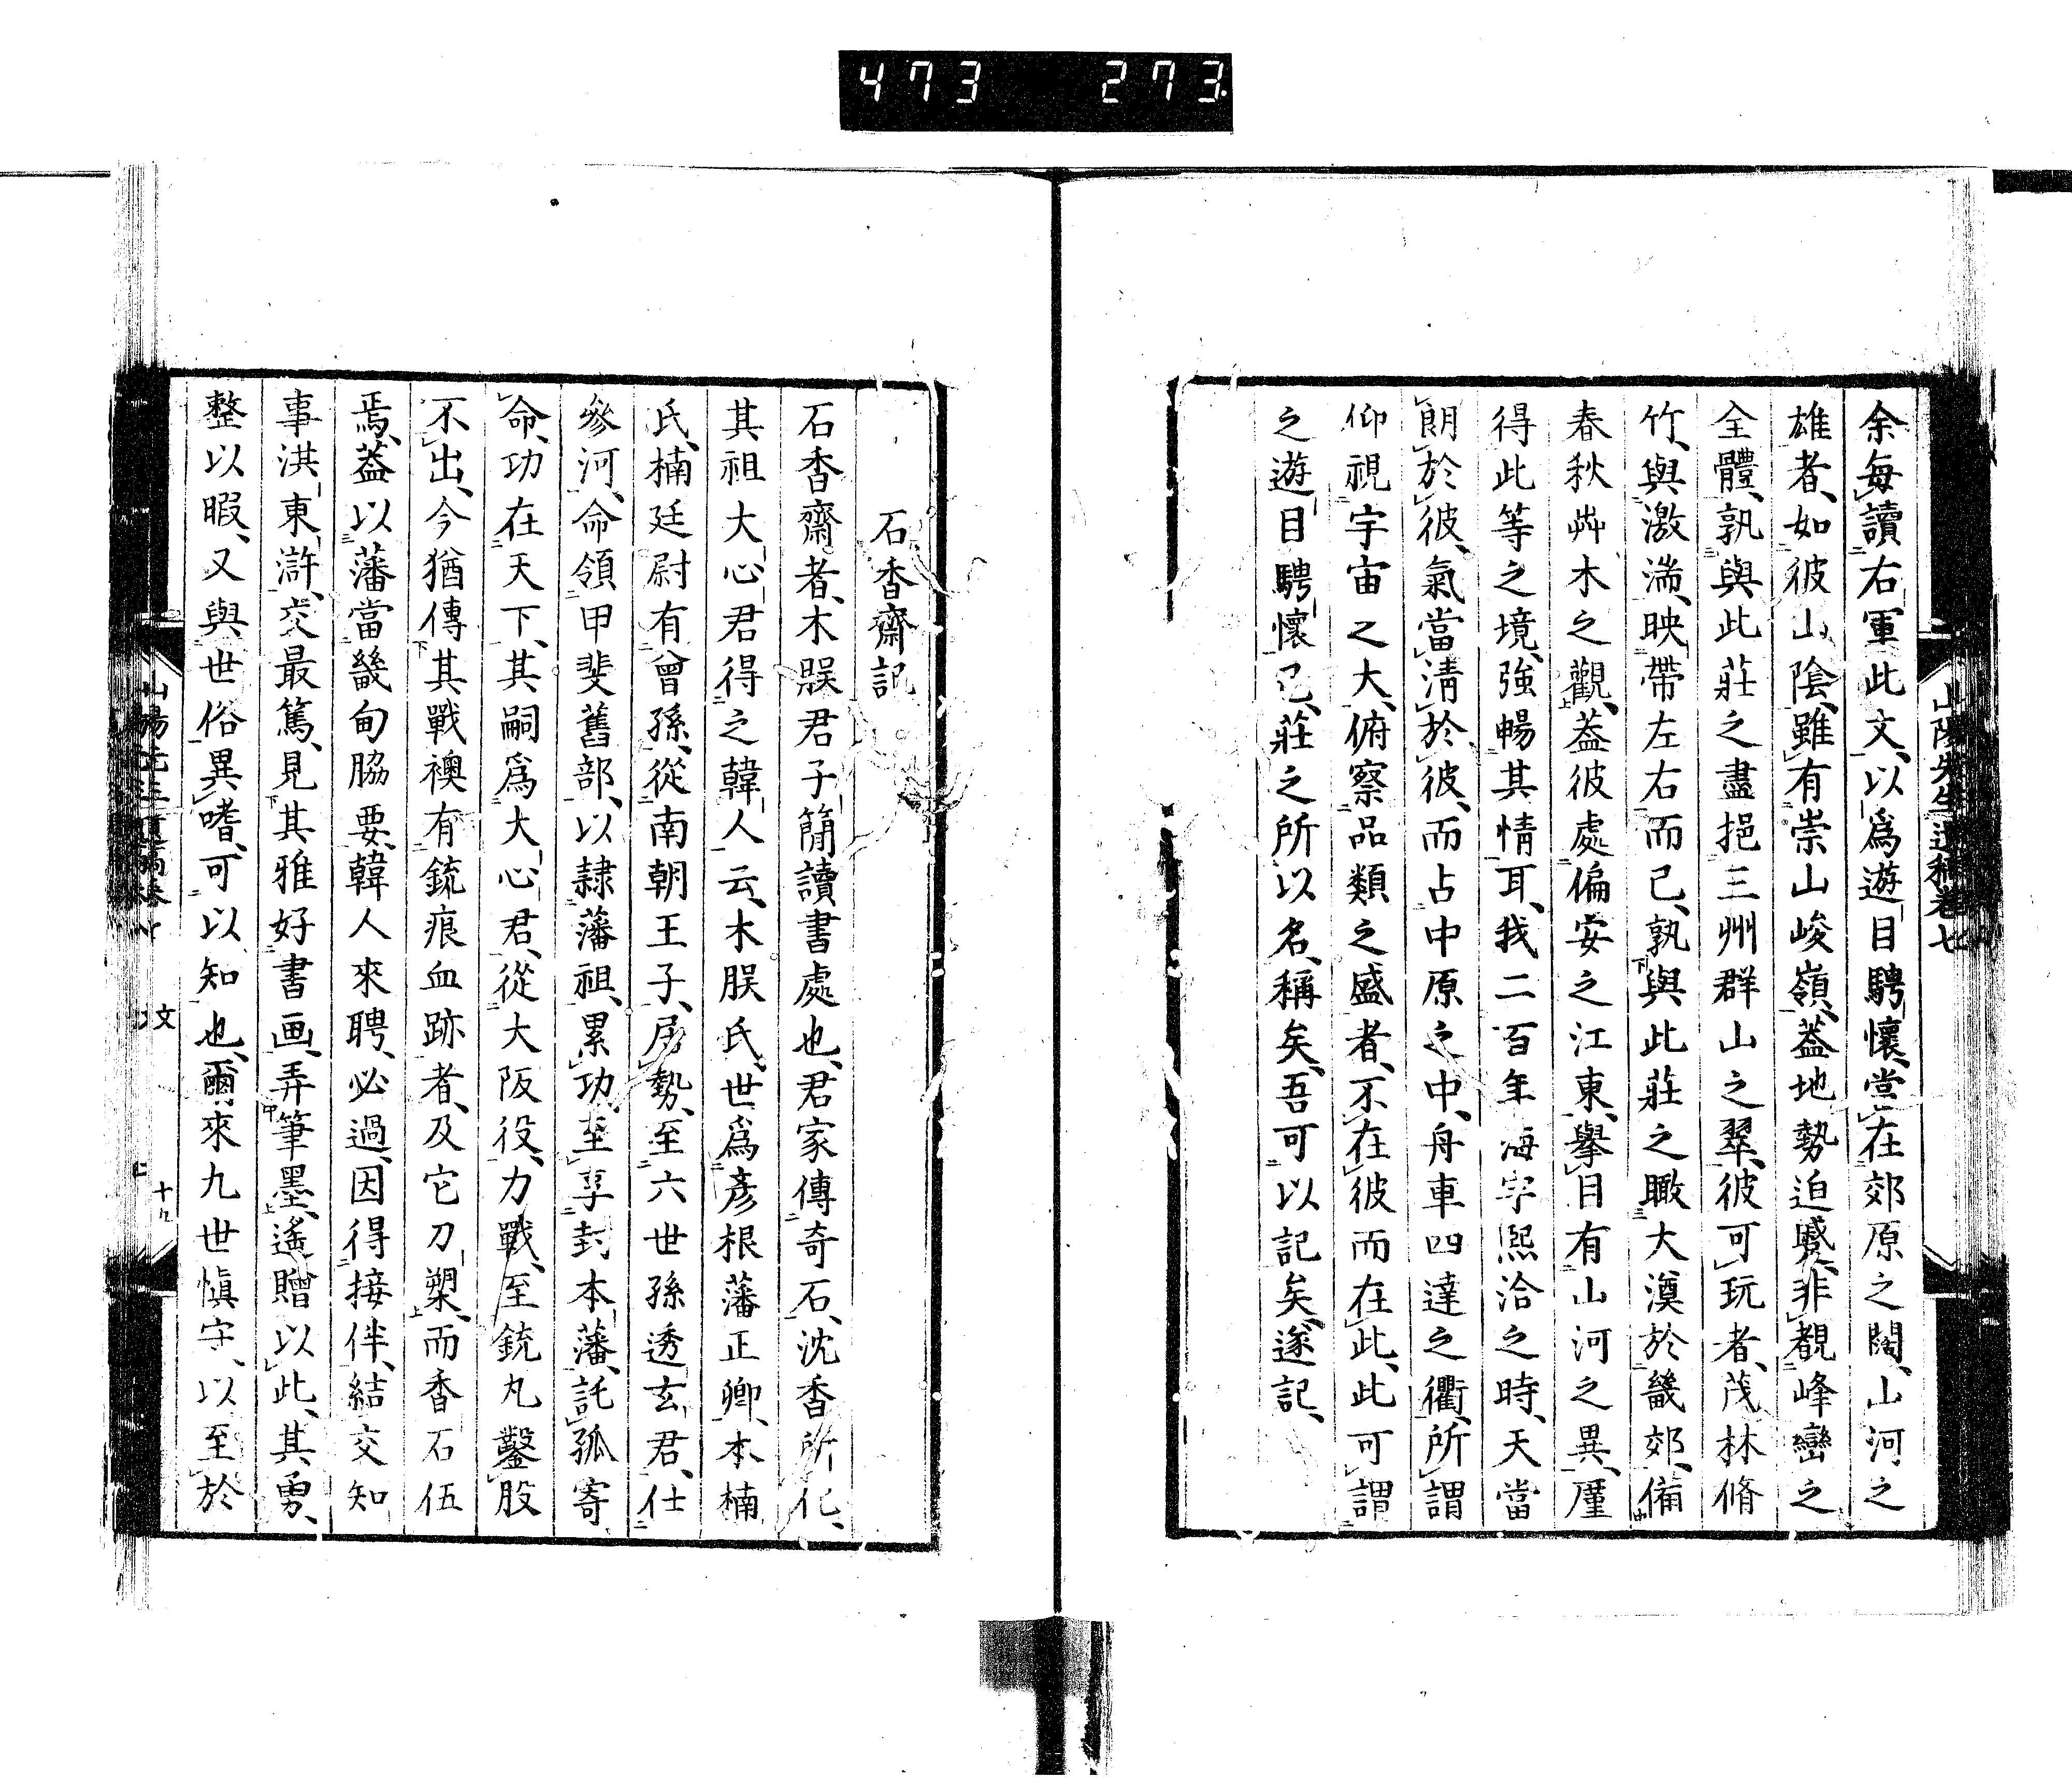 473 273.
山陽先生遺稿卷七
余每讀右軍此文、以爲遊目騁懷、當在郊原之闊、山河之
雄者、如彼山陰、雖有崇山峻嶺、蓋地勢迫蹙、非覩峰巒之
全體、孰與此莊之盡挹三州群山之翠、彼可玩者、茂林脩
竹、與激湍、映帶左右而已、孰與此莊之瞰大漠於畿郊、備
春秋艸木之觀、蓋彼處偏安之江東、擧目有山河之異、厪
得此等之境、強暢其情耳、我二百年海宇熙洽之時、天當
朗於彼、氣當淸於彼、而占中原之中、舟車四達之衢、所謂
仰視宇宙之大、俯察品類之盛者、不在彼而在此、此可謂
之遊目騁懷已、莊之所以名、稱矣、吾可以記矣、遂記、
石香齋記
石香齋者、木脵君子簡讀書處也、君家傳奇石、沈香所化、
其祖大心君得之韓人云、木脵氏、世爲彥根藩正卿、本楠
氏、楠廷尉有曾孫、從南朝王子、居勢、至六世孫透玄君、仕
參河、命領甲斐舊部、以隷藩祖、累功、至享封本藩、託孤寄
命、功在天下、其嗣爲大心君、從大阪役、力戰、至銃丸鑿股
不出、今猶傳其戰襖有銃痕血跡者、及它刀槊、而香石伍
焉、蓋以藩當畿甸脇要、韓人來聘、必過、因得接伴、結交知
事洪東滸、交最篤、見其雅好書画、弄筆墨、遙贈以此、其勇、
整以暇、又與世俗異嗜、可以知也、爾來九世愼守、以至於
文
十九